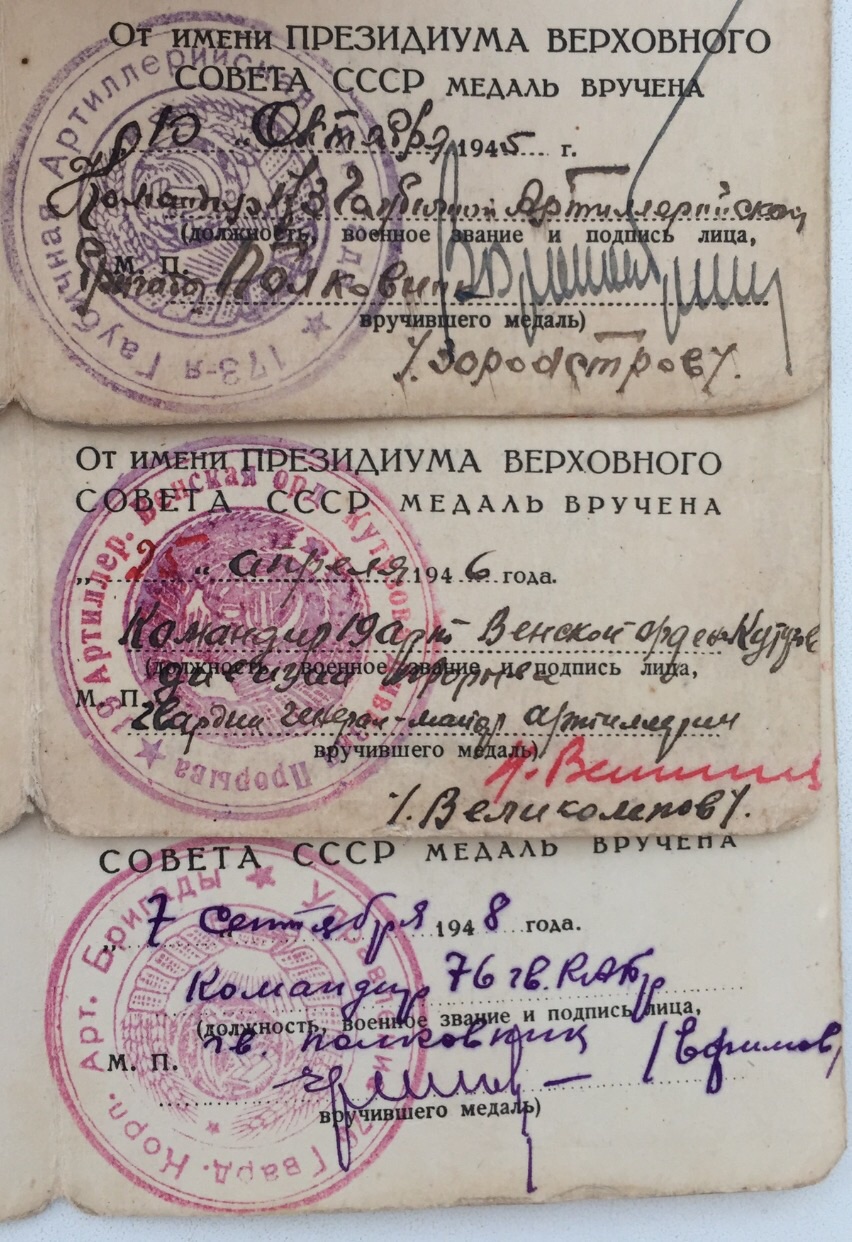 От имени ПРЕЗИДИУМА ВЕРХОВНОГО
СОВЕТА СССР МЕДАЛЬ ВРУЧЕНА
„10" Октября 1945 г.
Командир 173 Гаубичной Артиллерийской
(должность, военное звание и подпись лица,
М. П.
Бригады Полковник
вручившего медаль)
/Зороастров/.
173-я Гаубичная Артиллерийская
От имени ПРЕЗИДИУМА ВЕРХОВНОГО
СОВЕТА СССР МЕДАЛЬ ВРУЧЕНА
„2" апреля 1946 года.
Командир 19 арт Венской ордена Кутузова
(должность, военное звание и подпись лица,
дивизии прорыва
М. П.
Гвардии генерал-майор артиллерии
вручившего медаль)
/.Великолепов/.
19 Артиллер. Венская орд. Кутузова дивизия Прорыва
СОВЕТА СССР МЕДАЛЬ ВРУЧЕНА
„7" сентября 1948 года.
Командир 76 гв. КАБр
(должность, военное звание и подпись лица,
гв. полковник /Ефимов/
М. П.
вручившего медаль)
Управление 76 Гвард. Корп. Арт. Бригады